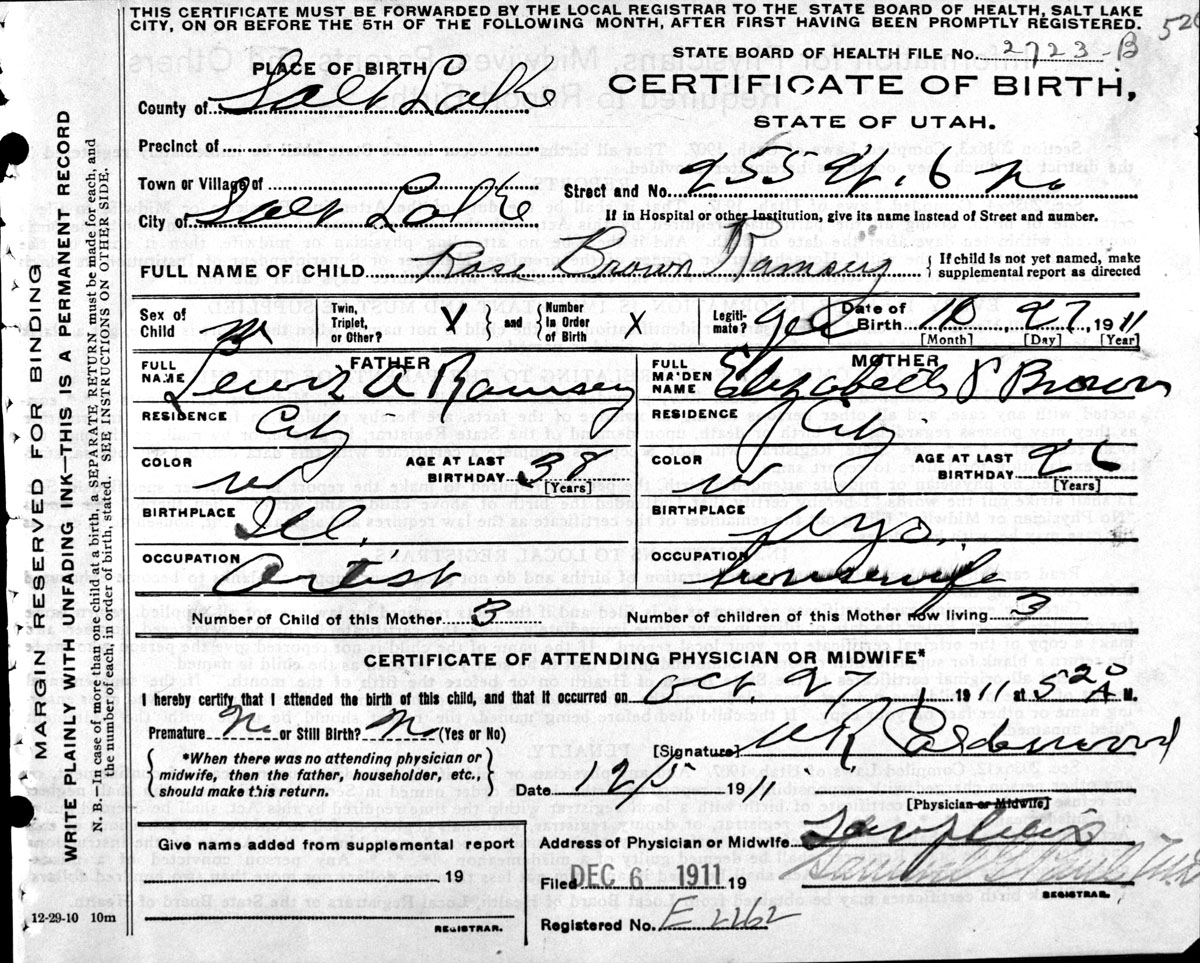 THIS CERTIFICATE MUST BE FORWARDED BY THE LOCAL REGISTRAR TO THE STATE BOARD OF HEALTH, SALT LAKE
CITY, ON OR BEFORE THE 5TH OF THE FOLLOWING MONTH, AFTER FIRST HAVING BEEN PROMPTLY REGISTERED.
STATE BOARD OF HEALTH FILE No. 2723-B
PLACE OF BIRTH
CERTIFICATE OF BIRTH,
County of Salt Lake
STATE OF UTAH.
Precinct of
Town or Village of
Street and No. 255 W. 6 No
City of Salt Lake
If in Hospital or other Institution, give its name instead of Street and number.
FULL NAME OF CHILD Rose Brown Ramsey { If child is not yet named, make supplemental report as directed
Sex of Child Twin, Triplet, or Other? X and { Number in Order of Birth X Legiti- mate? Yes Date of Birth 10 27 1911
[Month] [Day] [Year]
FATHER MOTHER
FULL NAME Lewis A Ramsey FULL MAIDEN NAME Elizabeth Brown
RESIDENCE City RESIDENCE City
COLOR W AGE AT LAST BIRTHDAY 38 [Years] COLOR W AGE AT LAST BIRTHDAY 26 [Years]
BIRTHPLACE Ill. BIRTHPLACE Wyo.
OCCUPATION Artist OCCUPATION Housewife
Number of Child of this Mother 3 Number of children of this Mother now living 3
CERTIFICATE OF ATTENDING PHYSICIAN OR MIDWIFE*
I hereby certify that I attended the birth of this child, and that it occurred on Oct. 27 191 1 at 5 20 A M.
Premature No or Still Birth? No (Yes or No)
[Signature]
*When there was no attending physician or midwife, then the father, householder, etc., should make this return.
Date 12/5 1911
[Physician or Midwife]
Give name added from supplemental report
Address of Physician or Midwife
19
Filed DEC 6 1911 19
REGISTRAR.
Registered No. E 2262
12-29-10 10m
REGISTRAR.
MARGIN RESERVED FOR BINDING
WRITE PLAINLY WITH UNFADING INK—THIS IS A PERMANENT RECORD
N. B.—In case of more than one child at a birth, a SEPARATE RETURN must be made for each, and
the number of each, in order of birth, stated. SEE INSTRUCTIONS ON OTHER SIDE.